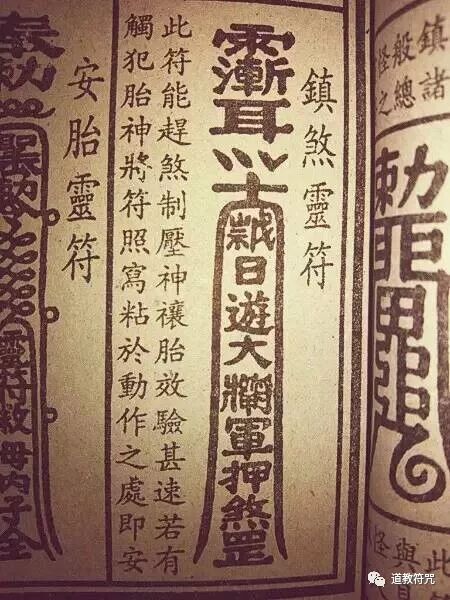 鎮諸
般總
怪之
勅
鎮煞靈符
日遊大將軍押煞罡
此符能趕煞制壓神禳胎效驗甚速若有
觸犯胎神將符照寫粘於動作之處即安
安胎靈符
奉勅
靈符救母內子全
道教符咒